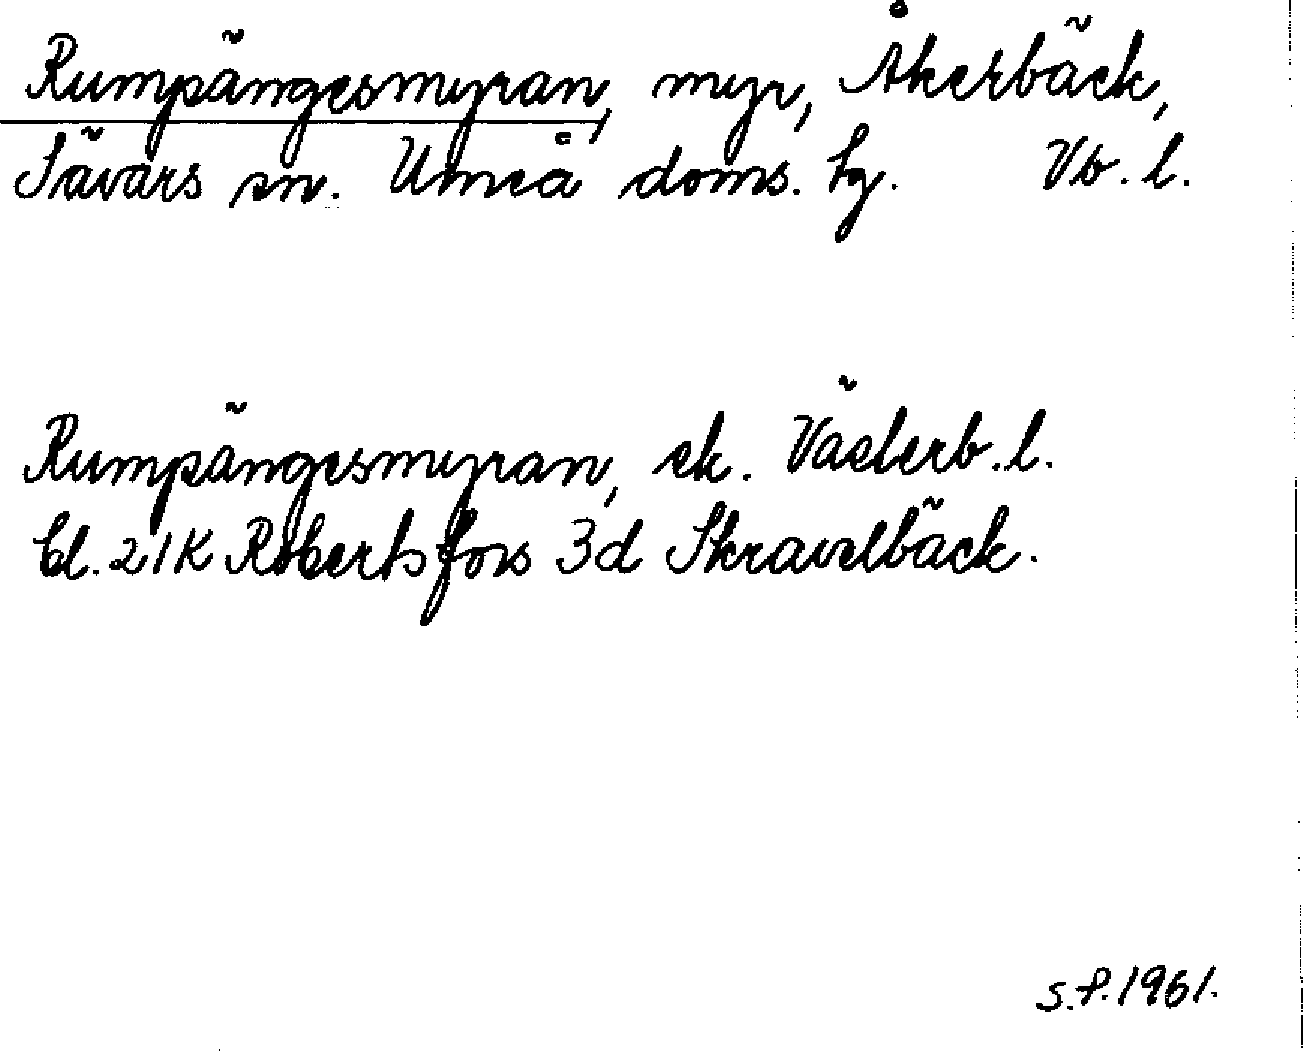 Rumpängesmyran, myr, Åkerbäck,
Sävars sn. Umeå doms. hg. Vb. l.
Rumpängesmyran, ek. Västerb. l.
bl. 21K Robertsfors 3d Skravelbäck.
S.P. 1961.